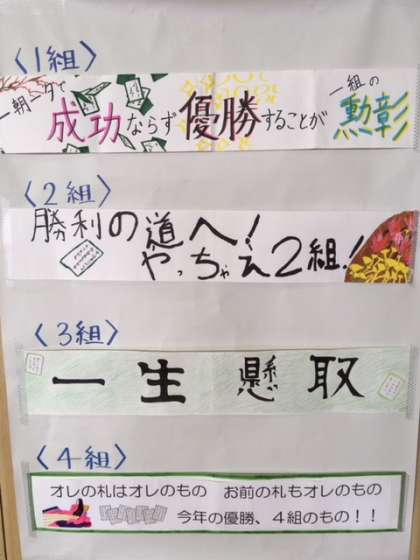 〈1組〉
一朝一夕で
成功ならず優勝することが
一組の
勲彰
〈2組〉
勝利の道へ!
やっちゃえ2組!
〈3組〉
一生懸取
〈4組〉
オレの札はオレのもの お前の札もオレのもの
今年の優勝、4組のもの!!